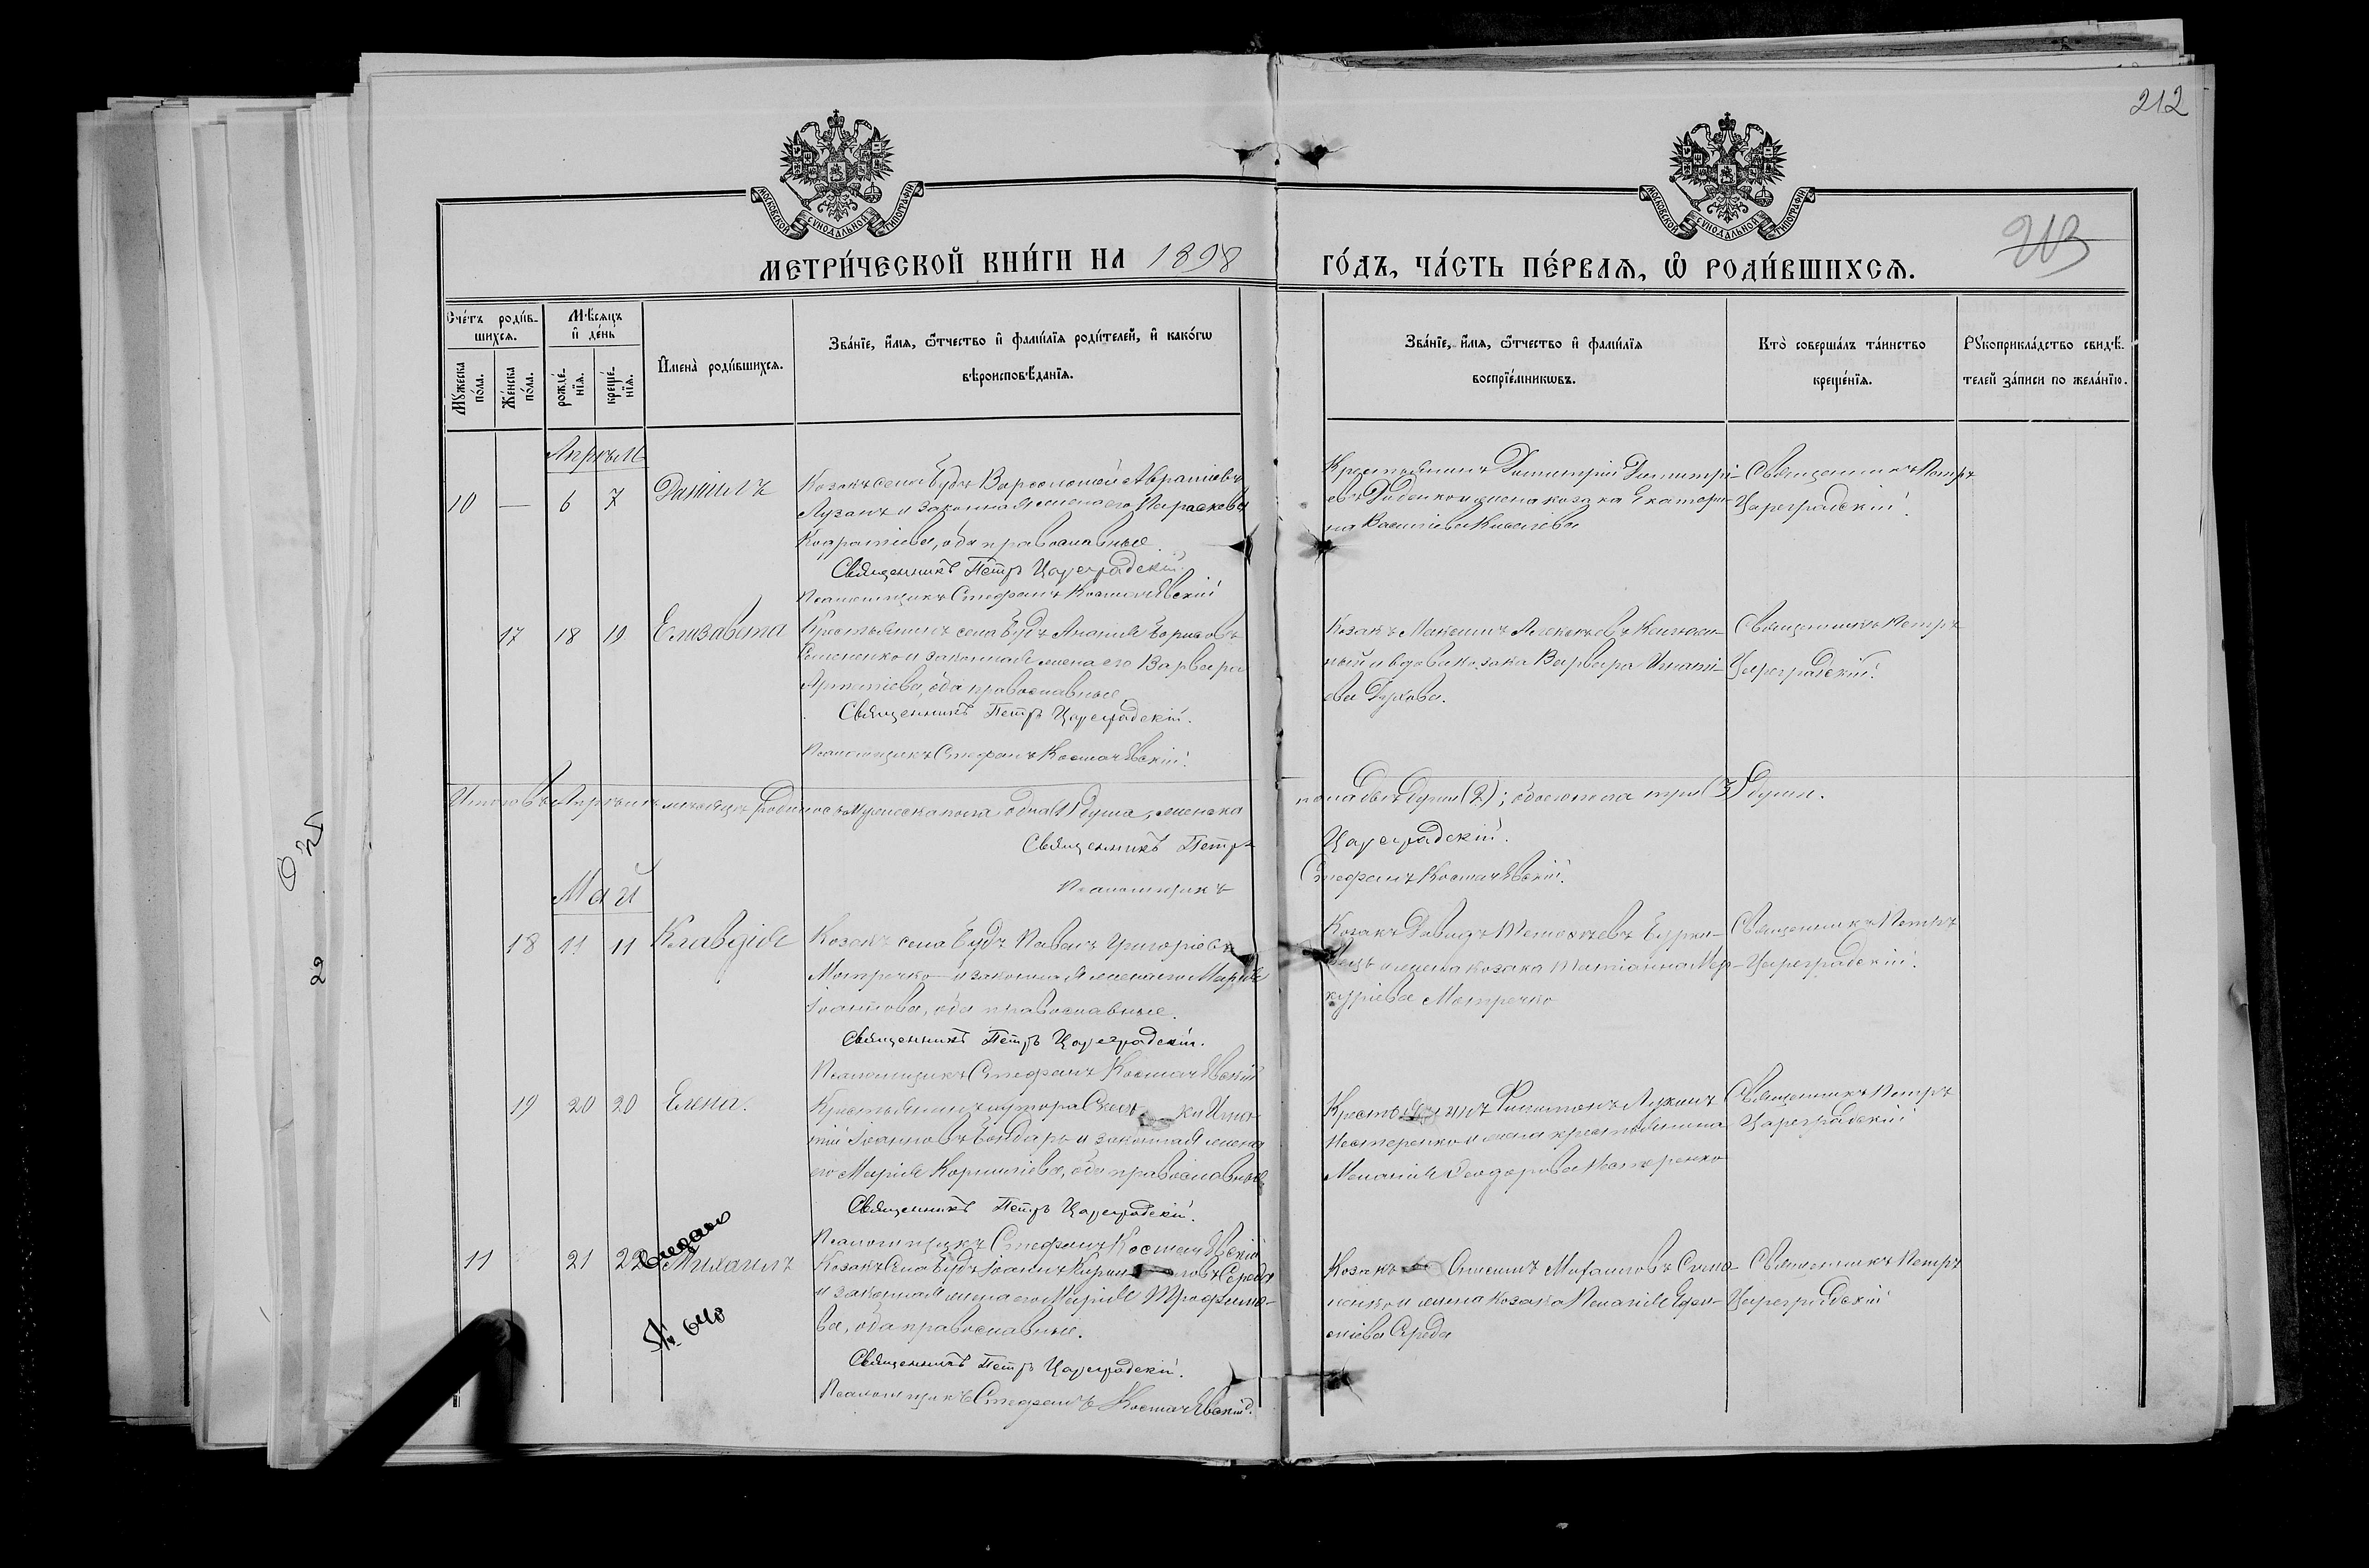 212
213
МОСКОВСКОЙ СѴНОДАЛЬНОЙ ТИПОГРАФІИ
МОСКОВСКОЙ СѴНОДАЛЬНОЙ ТИПОГРАФІИ
МЕТРИ́ЧЕСКОЙ КНИ́ГИ НА 1898
ГО́ДЪ, ЧА́СТЬ ПЕ́РВАѦ, Ѽ РОДИ́ВШИХСѦ.
Сче́тъ роди́в-
шихсѧ.
Мꙋжеска по́ла.
Же́нска по́ла.
Мѣсѧцъ
и҆ де́нь
рожде́-
нїѧ.
креще́-
нїѧ.
И҆мена̀ роди́вшихсѧ.
Зва́нїе, и҆́мѧ, ѻ҆́тчество и҆ фами́лїѧ роди́телей, и҆ како́гѡ
вѣроисповѣ́данїѧ.
Зва́нїе, и҆́мѧ, ѻ҆́тчество и҆ фами́лїѧ
воспрїе́мникѡвъ.
Кто̀ соверша́лъ та́инство
креще́нїѧ.
Рꙋкоприкла́дство свидѣ́-
телей за́писи по жела́нїю.
Апрѣль
10 — 6 7 Даніилъ
Козакъ села Будъ Варѳоломей Авраміевъ
Лузанъ и законная жена его Параскева
Кодратіева, оба православные
Священникъ Петръ Цареградскій.
Псаломщикъ Стефанъ
Крестьянинъ Димитрій Димитрі-
евъ Диденко и жена козака Екатери-
на Василіева
Священникъ Петръ
Цареградскій.
17 18 19 Елизавета
Крестьянинъ села Будъ Ананія Борисовъ
и законная жена его Варвара
оба православные
Священникъ Петръ Цареградскій.
Псаломщикъ Стефанъ
Козакъ Максимъ Алексѣевъ
и вдова козака Варвара Игнаті-
ева
Священникъ Петръ
Цареградскій.
Итого въ Апрѣлѣ мѣсяцѣ родилось мужеска пола одна (1) душа, женска
пола двѣ души (2); обоего пола три (3) души.
Священникъ Петръ
Цареградскій.
Псаломщикъ
Стефанъ
Май
18 11 11 Клавдія
Козакъ села Будъ Павелъ Григоріевъ
Мотречко и законная жена его Марія
Іоаннова, оба православные.
Священникъ Петръ Цареградскій.
Псаломщикъ Стефанъ
Козакъ Давидъ Тимоѳеевъ
и жена козака Татіанна Мер-
куріева Мотречко
Священникъ Петръ
Цареградскій.
19 20 20 Елена.
Крестьянинъ хутора
Іоанновъ Бондарь и законная жена
его Марія Корниліева, оба православные
Священникъ Петръ Цареградскій.
Псаломщикъ Стефанъ
Крестьянинъ Филимонъ Лукинъ
Нестеренко и жена крестьянина
Меланія Ѳеодорова Нестеренко
Священникъ Петръ
Цареградскій
11 21 22 Михаилъ
№ 640
Козакъ села Будъ Іоаннъ Середа
и законная жена его Марія Трофимо-
ва, оба православные.
Священникъ Петръ Цареградскій.
Псаломщикъ Стефанъ
Козакъ Онисимъ Михаиловъ
и жена козака
Середа
Священникъ Петръ
Цареградскій